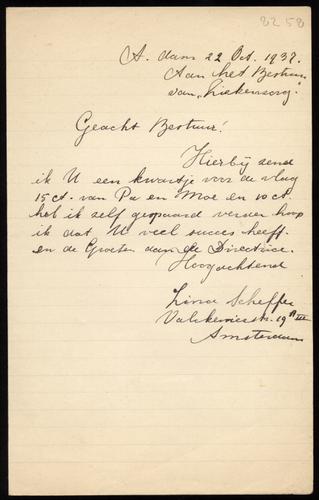 8258
A. dam 22 Oct. 1937.
Aan het Bestuur
van „Ziekenzorg".
Geacht Bestuur!
Hierbij zend
ik U een kwartje voor de vlag
15 ct. van Pa en Moe en 10 ct.
heb ik zelf gespaard verder hoop
ik dat U veel succes heeft.
en de Groeten aan de Directrice.
Hoogachtend
Lina Scheffer
19 III
Amsterdam